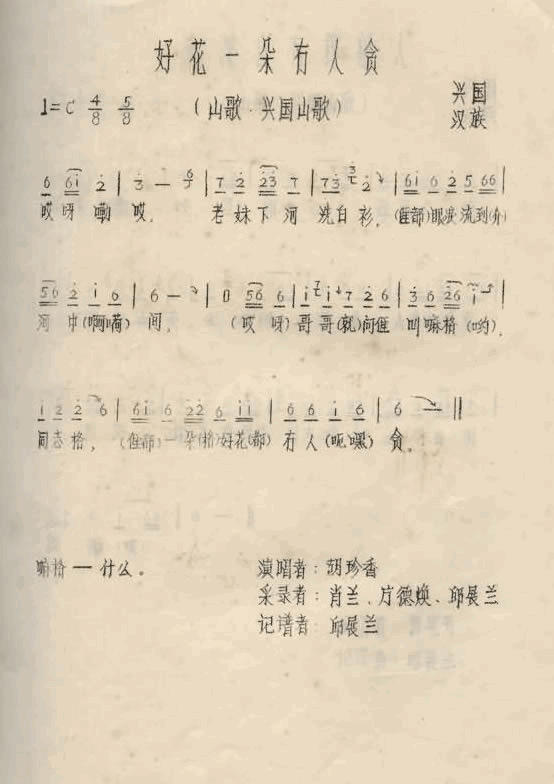 好花一朵冇人贪
1=C 4/8 5/8 (山歌·兴国山歌) 兴国
汉族
6 6i 2 | 3 — 6 | 7 2 23 7 | 73 3 2 | 6i 6 2 5 66 |
哎呀嘞哎, 老妹下河洗白衫, (𠊎部)眼泪流到(介)
56 2 i 6 | 6 — | 0 56 6 | i i 7 2 6 | 3 6 26 i |
河中(啊嗬)间, (哎呀)哥哥(就)问𠊎叫嘛格(哟),
i 2 2 6 | 6i 6 22 6 ii | 6 6 i 6 | 6 — ‖
同志格, (𠊎部)一朵(格)好花(都)冇人(呃嘿)贪。
嘛格—什么。 演唱者: 胡珍香
采录者: 肖兰、方德焕、邱展兰
记谱者: 邱展兰